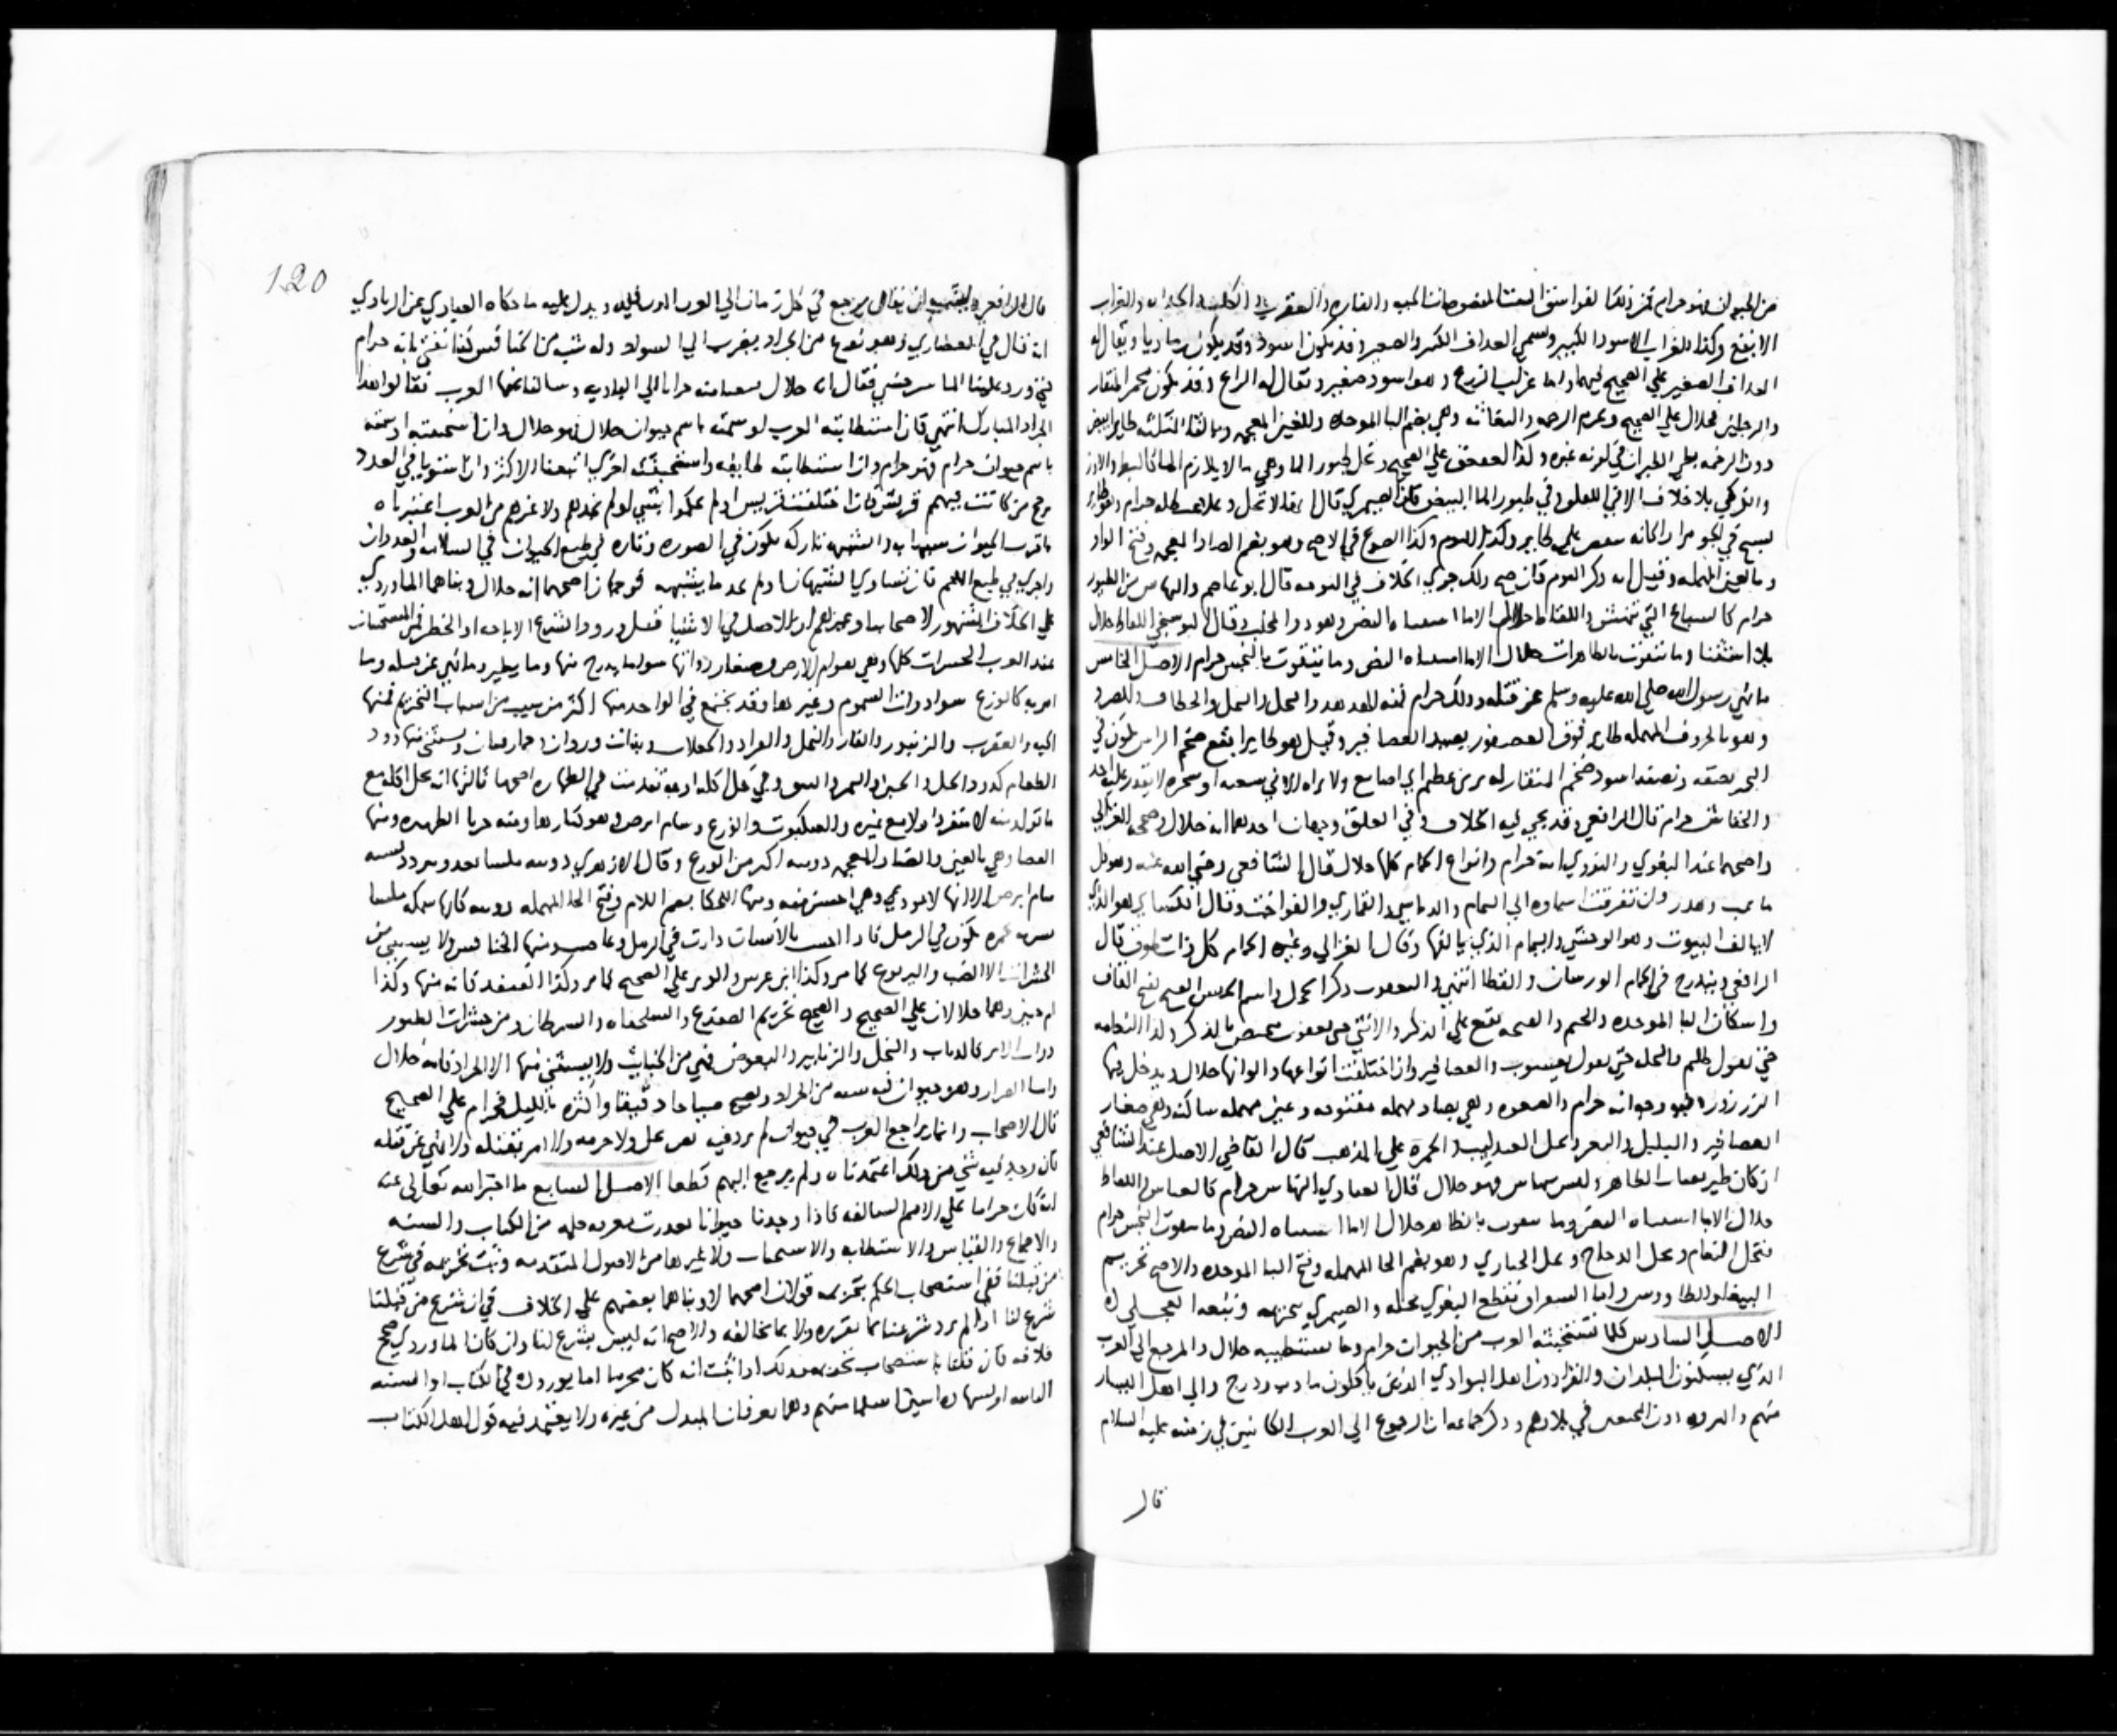 من الحيوان فهو حرام فمن ذلك الفواسق الستة المنصوصات الحيه والفاره والعقرب والكلب والحداه والغراب
الابقع وكذا الغراب الاسود الكبير ويسمي الغداف الكبير والصغير وقد يكون اسود وقد يكون رماديا ويقال له
الغداف الصغير علي الصحيح فيهما واما غراب الزرع وهو اسود صغير ويقال له الزاغ وقد يكون محمر المنقار
والرجلين فحلال علي الصحيح ويحرم الرخمه والبغاثه وهي بضم البا الموحده وبالغين المعجمه وبالثا المثلثه طاير ابيض
دون الرخمه بطي الطيران في لونه غبره وكذا العقعق علي الصحيح وتحل طيور الما وهي ما لا يلازم الما كالبط والاوز
والكركي بلا خلاف الا في اللقلق وفي طيور الما البيض فان الصيمري قال انها لا تحل وعلله بان حرام وهو طاير
يسبح في الجو مرارا كانه علي طاير وكذا البوم وكذا الضوع في الاصح وهو بضم الضاد المعجمه وفتح الواو
وبالعين المهمله وقيل انه ذكر البوم فان صح ذلك جري الخلاف في البومه قال ابو عاصم والنهاس من الطيور
حرام كالسباع التي تنهش واللقاط حلال الا ما استثناه النص وهو ذو المخلب وقال البوسنجي اللقاط حلال
بلا استثنا وما تقوت بالطاهرات حلال الا ما استثناه النص وما يتقوت بالنجس حرام الاصل الخامس
ما نهي رسول الله صلي الله عليه وسلم عن قتله وذلك حرام فمنه الهدهد والنحل والنمل والخطاف والصرد
وهو بالحروف المهمله طاير فوق العصفور يصيد العصافير وقيل هو طاير ابقع ضخم الراس يكون في
الشجر نصفه ونصفه اسود ضخم المنقار له برثن عظيم اي اصابع ولا يراه الا في شعبه او شجره لا يقدر عليه احد
والخفاش حرام قال الرافعي وقد يجي فيه الخلاف وفي اللقلق وجهان احدهما انه حلال وصححه الغزالي
واصحهما عند البغوي والنووي انه حرام وانواع الحمام كلها حلال قال الشافعي رضي الله عنه وهو كل
ما عب وهدر وان تفرقت اسماوه الي اليمام والدباسي والقماري والفواخت وقال الكسائي هو الذي
لا يالف البيوت وهو الوحشي واليمام الذي يالفها وقال الغزالي وغيره الحمام كل ذات طوق قال
الرافعي ويندرج في الحمام الورشان والقطا انتهي واليعقوب ذكر الحجل واسم الجنس القبج بفتح القاف
واسكان البا الموحده والجيم والقبجه تقع علي الذكر والانثي حتي يعقوب يختص بالذكر وكذا النعامه
حتي يقول ظليم والنحله حتي يقول يعسوب والعصافير وان اختلفت انواعها والوانها حلال ويدخل فيها
الزرزور وحرام والصعوه وهي بصاد مهمله مفتوحه وعين مهمله ساكنه وهي صغار
العصافير والبلبل والنغر ويحل العندليب والحمره علي المذهب قال القاضي الاصل عند الشافعي
ان كان طير يقتات الطاهر وليس بنهاس فهو حلال قال العبادي النهاس حرام كالسباع واللقاط
حلال الا ما استثناه النص وما يتقوت بالطاهر حلال الا ما استثناه النص وما يتقوت النجس حرام
فتحل النعام ويحل الدجاج ويحل الحباري وهو بضم الحا المهمله وفتح البا الموحده والاصح تحريم
الببغا والطاووس واما الشقراق فقطع البغوي بحله والصيمري بتحريمه وتبعه العجلي
الاصل السادس كلما تستخبثه العرب من الحيوان حرام وما تستطيبه حلال والمرجع الي العرب
الذين يسكنون البلدان والقرا دون اهل البوادي الذين ياكلون ما دب ودرج والي اهل اليسار
منهم والثروه دون المحتاجين في بلادهم وذكر جماعه ان الرجوع الي العرب الكائنين في زمنه عليه السلام
قال
120
قال الرافعي ويشبه ان يقال يرجع في كل زمان الي العرب الموجودين فيه ويدل عليه ما حكاه العبادي عن الزيادي
انه قال في الغضاري وهو نوع من الجراد يضرب الي السواد وله شبه من الخنافس كنا نفتي بانه حرام
حتي ورد علينا الماسرجسي فقال انه حلال فبعثنا منه جرابا الي الباديه وسالنا عنها العرب فقالوا هذا
الجراد المبارك انتهي فان استطابته العرب او سمته باسم حيوان حلال فهو حلال وان استخبثته او سمته
باسم حيوان حرام فهو حرام وان استطابته طايفه واستخبثته اخري اتبعنا الاكثر وان استويا في العدد
رجح من كانت فيهم قريش فان اختلفت قريش او لم يحكموا بشي او لم نجدهم ولا غيرهم من العرب اعتبرناه
باقرب الحيوان شبها به والشبهه تاره يكون في الصوره وتاره في طبع الحيوان في السلامه والعدوان
واخري في طبع اللحم فان تساوي الشبهان او لم نجد ما يشبهه فوجهان اصحهما انه حلال وبناهما الماوردي
علي الخلاف المشهور لاصحابنا وغيرهم ان الاصل في الاشيا قبل ورود الشرع الاباحه او الحظر فمن المستخبثات
عند العرب الحشرات كلها وهي هوام الارض وصغار دوابها سوا ما يدرج منها وما يطير وما نهي عن قتله وما
امر به كالوزغ سوا ذوات السموم وغيرها وقد يجتمع في الواحد منها اكثر من سبب من اسباب التحريم فمنها
الحيه والعقرب والزنبور والفار والنمل والقراد والجعلان وبنات وردان وحمار قبان ويستثني منها دود
الطعام كدود الخل والجبن والتمر والسوس وفي حل اكله اوجه تقدمت في الطهاره اصحها ثالثها انه يحل اكله مع
ما تولد منه لا منفردا ولا مع غيره والعنكبوت والوزغ وسام ابرص وهو كبارها ومنه حربا الظهيره ومنها
العضا وهي بالعين والضاد المعجمه دويبه اكبر من الوزغ وقال الازهري دويبه ملسا تعدو وتتردد تشبه
سام ابرص الا انها لا توذي وهي احسن منه ومنها اللحكا بضم اللام وفتح الحا المهمله دويبه كانها سمكه ملسا
تكون في الرمل فاذا احست بالانسان دارت في الرمل وغاصت ومنها الخنافس ولا يستثني من
الحشرات الا الضب واليربوع كما مر وكذا ابن عرس والوبر علي الصحيح كما مر وكذا القنفذ فانه منها وكذا
ام حبين وهما حلالان علي الصحيح والصحيح تحريم الضفدع والسلحفاه والسرطان ومن حشرات الطيور
ذوات الابر كالذباب والنحل والزنابير والبعوض فهي من الخبايث ولا يستثني منها الا الجراد فانه حلال
واما الصرار وهو حيوان فيه شبه من الجراد ويصيح صياحا دقيقا واكثره بالليل فحرام علي الصحيح
قال الاصحاب وانما يراجع العرب في حيوان لم يرد فيه نص بحل ولا حرمه ولا امر بقتله ولا نهي عن قتله
فان وجد فيه شي من ذلك اعتمدناه ولم يرجع اليهم قطعا الاصل السابع ما اخبر الله تعالي عنه
انه كان حراما علي الامم السالفه فاذا وجدنا حيوانا تعذرت معرفه حكمه من الكتاب والسنه
والاجماع والقياس والاستطابه والاستخباث ولا غيرها من الاصول المتقدمه وثبت تحريمه في شرع
من قبلنا ففي استصحاب الحكم بتحريمه قولان اصحهما لا وبناهما بعضهم علي الخلاف في ان شرع من قبلنا
شرع لنا اذا لم يرد شرعنا بما يقرره ولا بما يخالفه والاصح انه ليس بشرع لنا وان كان الماوردي صحح
خلافه فان قلنا باستصحاب تحريمه فذلك اذا ثبت انه كان محرما اما بوروده في الكتاب او السنه
اسلما منهم وهما يعرفان المبدل من غيره ولا يعتمد فيه قول اهل الكتاب